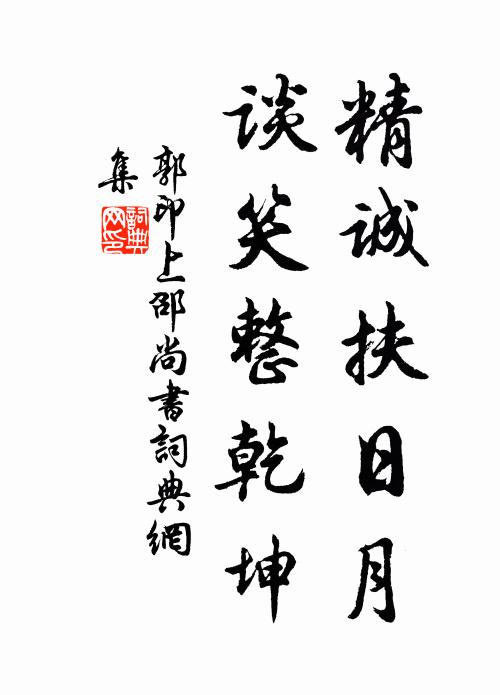 精诚扶日月
谈笑整乾坤
郭印上邵尚書詞典網
集
詞典
网印